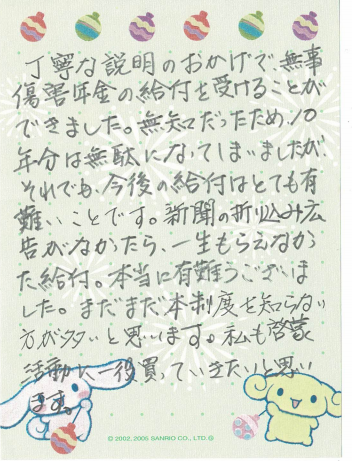 丁寧な説明のおかげで、無事
傷害年金の給付を受けることが
できました。無知だったため、10
年分は無駄になってしまいましたが、
それでも、今後の給付はとても有
難いことです。新聞の折り込み広
告がなかったら、一生もらえなかっ
た給付。本当に有難うございま
した。まだまだ本制度を知らない
方が多いと思います。私も啓蒙
活動に一役買っていきたいと思い
ます。
© 2002, 2005 SANRIO CO., LTD.